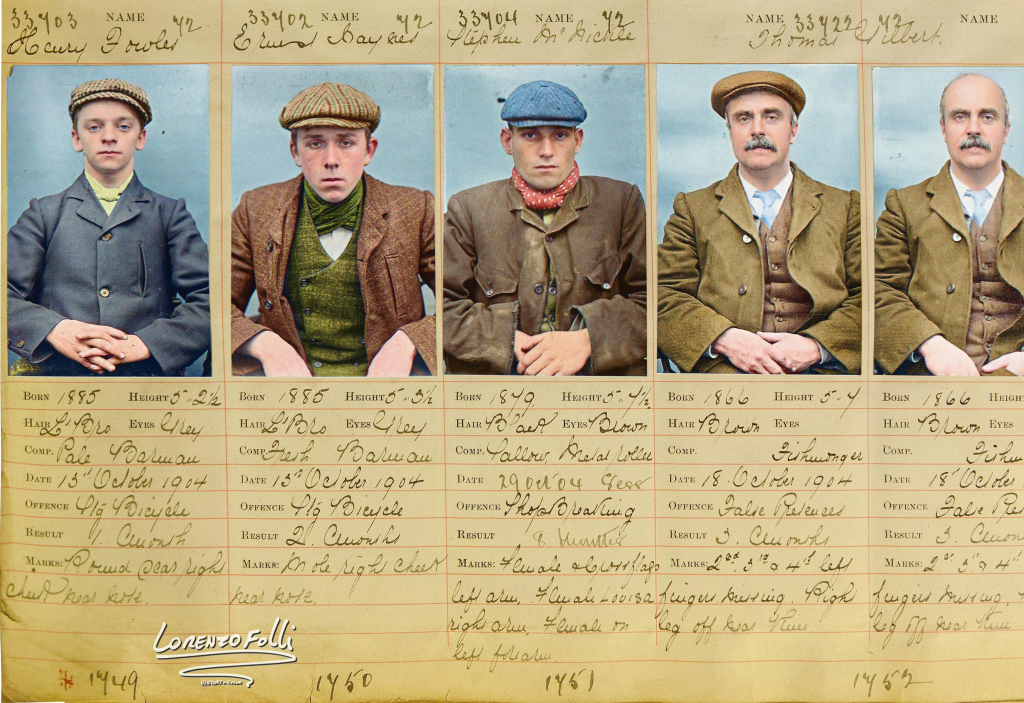 33703 NAME 72
Henry Fowles
BORN 1885 HEIGHT 5-2½
HAIR L'Bro EYES Grey
COMP. Pale Barman
DATE 13th October 1904
OFFENCE Stg Bicycle
RESULT 1. Month
MARKS: Round scar right
cheek near nose.
1749
33702 NAME 72
Ernest Haynes
BORN 1885 HEIGHT 5-3½
HAIR L'Bro EYES Grey
COMP. Fresh Barman
DATE 13th October 1904
OFFENCE Stg Bicycle
RESULT 2. Months
MARKS: Mole right cheek
near nose.
1750
33704 NAME 72
Stephen
BORN 1879 HEIGHT 5-4½
HAIR Black EYES Brown
COMP. Sallow Metal roller
DATE 29 Oct 04
OFFENCE ShopBreaking
RESULT 8 Months
MARKS: Female & Crossflags
left arm, Female Louisa
right arm, Female on
left forearm
1751
NAME 33422 72
Thomas
BORN 1866 HEIGHT 5-4
HAIR Brown EYES
COMP. Fishmonger
DATE 18 October 1904
OFFENCE False Pretences
RESULT 3. Months
MARKS: 2nd 3rd & 4th left
fingers missing. Right
leg off near knee
1752
NAME
BORN 1866 HEIGH
HAIR Brown EYES
COMP. Fishm
DATE 18th October
OFFENCE False Pre
RESULT 3. Mon
MARKS: 2nd 3rd & 4th
fingers missing.
leg off near knee
LORENZO FOLLI